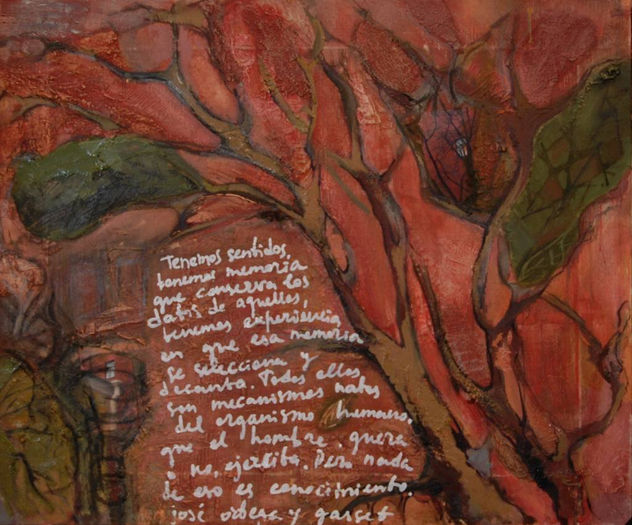 Tenemos sentidos,
tenemos memoria
que conserva los
datos de aquelles,
tenemos experiencia
en que esa memoria
se selecciona y
decanta. Todos ellos
son mecanismos natos
del organismo humano,
que el hombre, quera
o no, ejercita. Pero nada
de eso es conocimiento.
josé ortega y gasset